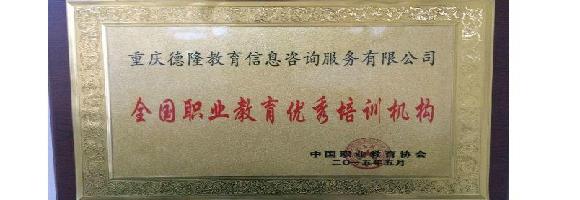 重庆德隆教育信息咨询服务有限公司
全国职业教育优秀培训机构
中国职业教育协会
二〇一五年五月